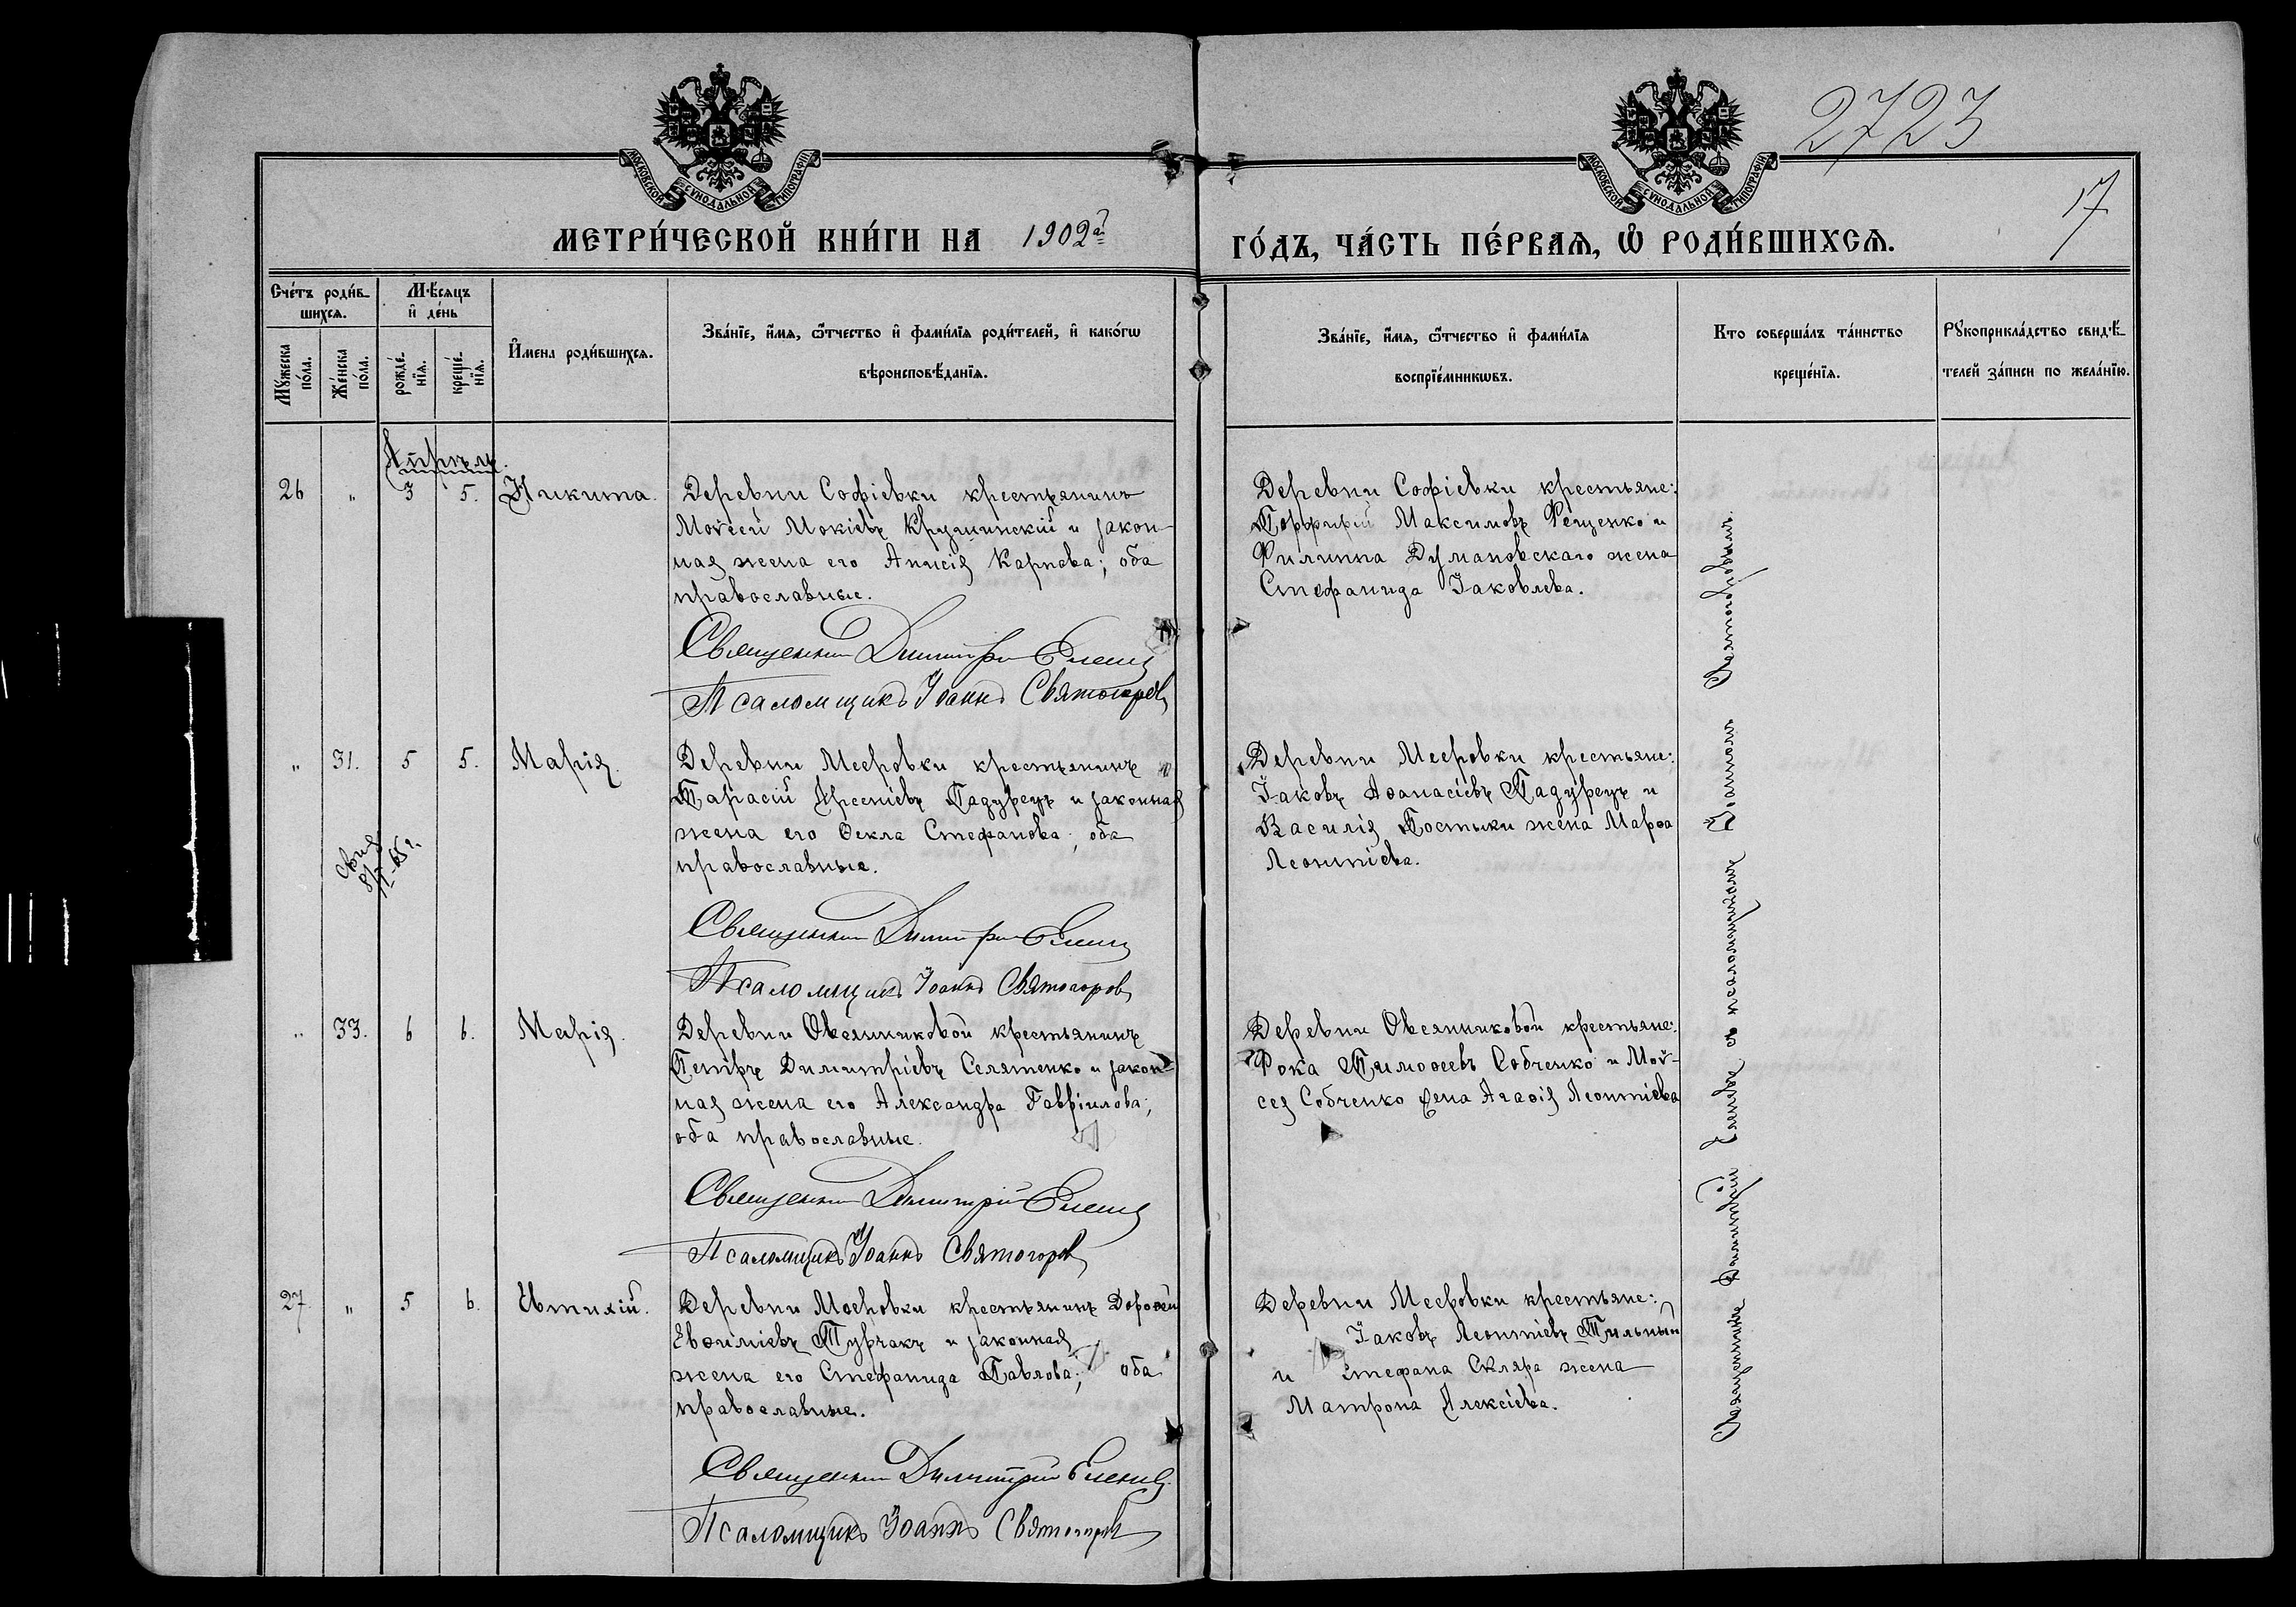 МОСКОВСКОЙ СѴНОДАЛЬНОЙ ТИПОГРАФІИ
МОСКОВСКОЙ СѴНОДАЛЬНОЙ ТИПОГРАФІИ
2723
17
МЕТРИ́ЧЕСКОЙ КНИ́ГИ НА 1902й
ГО́ДЪ, ЧА́СТЬ ПЕ́РВАѦ, Ѡ҆ РОДИ́ВШИХСѦ.
Сче́тъ роди́в-
шихсѧ.
Мꙋ́жеска
по́ла.
Же́нска
по́ла.
Мѣ́сѧцъ
и҆ де́нь
рожде́-
нїѧ.
креще́-
нїѧ.
И҆мена роди́вшихсѧ.
Зва́нїе, и҆́мѧ, ѻ҆́тчество и҆ фами́лїѧ роди́телей, и҆ како́гѡ
вѣроисповѣ́данїѧ.
Зва́нїе, и҆́мѧ, ѻ҆́тчество и҆ фами́лїѧ
воспрїе́мникѡвъ.
Кто соверша́лъ та́инство
креще́нїѧ.
Рꙋкоприкла́дство свидѣ́-
телей за́писи по жела́нїю.
Апрѣль.
26 " 3 5. Никита.
Деревни Софіевки крестьянинъ
Моѵсей Мокіевъ Крушинскій и закон-
ная жена его Анисія Карпова; оба
православные.
Священник Димитрій Еленец
Псаломщикъ Іоаннъ Святогоров
Деревни Софіевки крестьяне:
Порфирій Максимовъ Фещенко и
Филиппа Думановскаго жена
Стефанида Іаковлева.
" 31. 5 5. Марія.
Деревни Мееровки крестьянинъ
Тарасій Арсеніевъ Падурецъ и законная
жена его Ѳекла Стефанова; оба
православные.
Священник Димитрій Еленец
Псаломщикъ Іоаннъ Святогоров
Деревни Мееровки крестьяне:
Іаковъ Аѳанасіевъ Падурецъ и
Василія Костыки жена Марѳа
Леонтіева.
65 г.
" 33. 6 6. Марія.
Деревни Овсянниковой крестьянинъ
Петръ Димитріевъ Селятенко и закон-
ная жена его Александра Гавріилова;
оба православные.
Священник Димитрій Еленец
Псаломщикъ Іоаннъ Святогоров
Деревни Овсянниковой крестьяне:
Фока Тимоѳеевъ Собченко и Моѵ-
сея Собченко жена Агаѳія Леонтіева
27 " 5 6. Евтихій.
Деревни Мееровки крестьянинъ Дороѳей
Евѳиміевъ Турчакъ и законная
жена его Стефанида Павлова; оба
православные.
Священник Димитрій Еленец
Псаломщикъ Іоаннъ Святогоров
Деревни Мееровки крестьяне:
Іаковъ Леонтіевъ Тильный
и Стефана Скляра жена
Матрона Алексіева.
Священникъ Димитрій Еленецъ съ псаломщикомъ Іоанномъ Святогоровымъ.